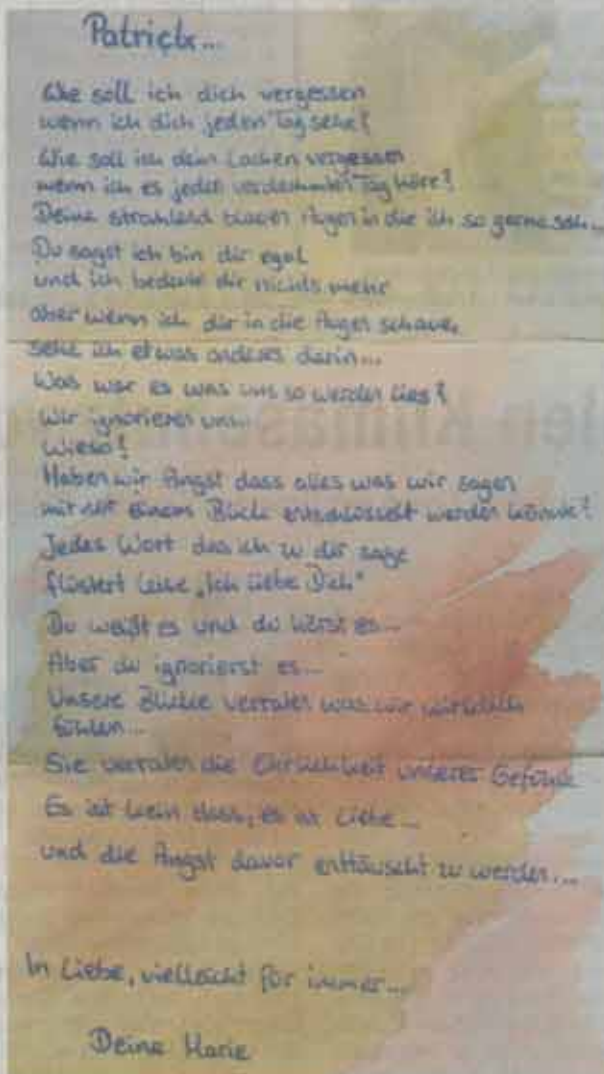 Patrick...
Wie soll ich dich vergessen
wenn ich dich jeden Tag sehe?
Wie soll ich dein Lachen vergessen
wenn ich es jeden verdammten Tag höre?
Deine strahlend blauen Augen in die ich so gerne sah...
Du sagst ich bin dir egal
und ich bedeute dir nichts mehr
aber wenn ich dir in die Augen schaue,
sehe ich etwas anderes darin...
Was war es was uns so werden lies?
Wir ignorieren uns...
Wieso?
Haben wir Angst dass alles was wir sagen
mit nur einem Blick entschlüsselt werden könnte?
Jedes Wort das ich zu dir sage
flüstert leise „Ich liebe Dich"
Du weißt es und du hörst es...
Aber du ignorierst es...
Unsere Blicke verraten was wir wirklich
fühlen...
Sie verraten die Ehrlichkeit unserer Gefühle
Es ist kein Hass, es ist Liebe...
und die Angst davor enttäuscht zu werden....
In Liebe, vielleicht für immer...
Deine Marie